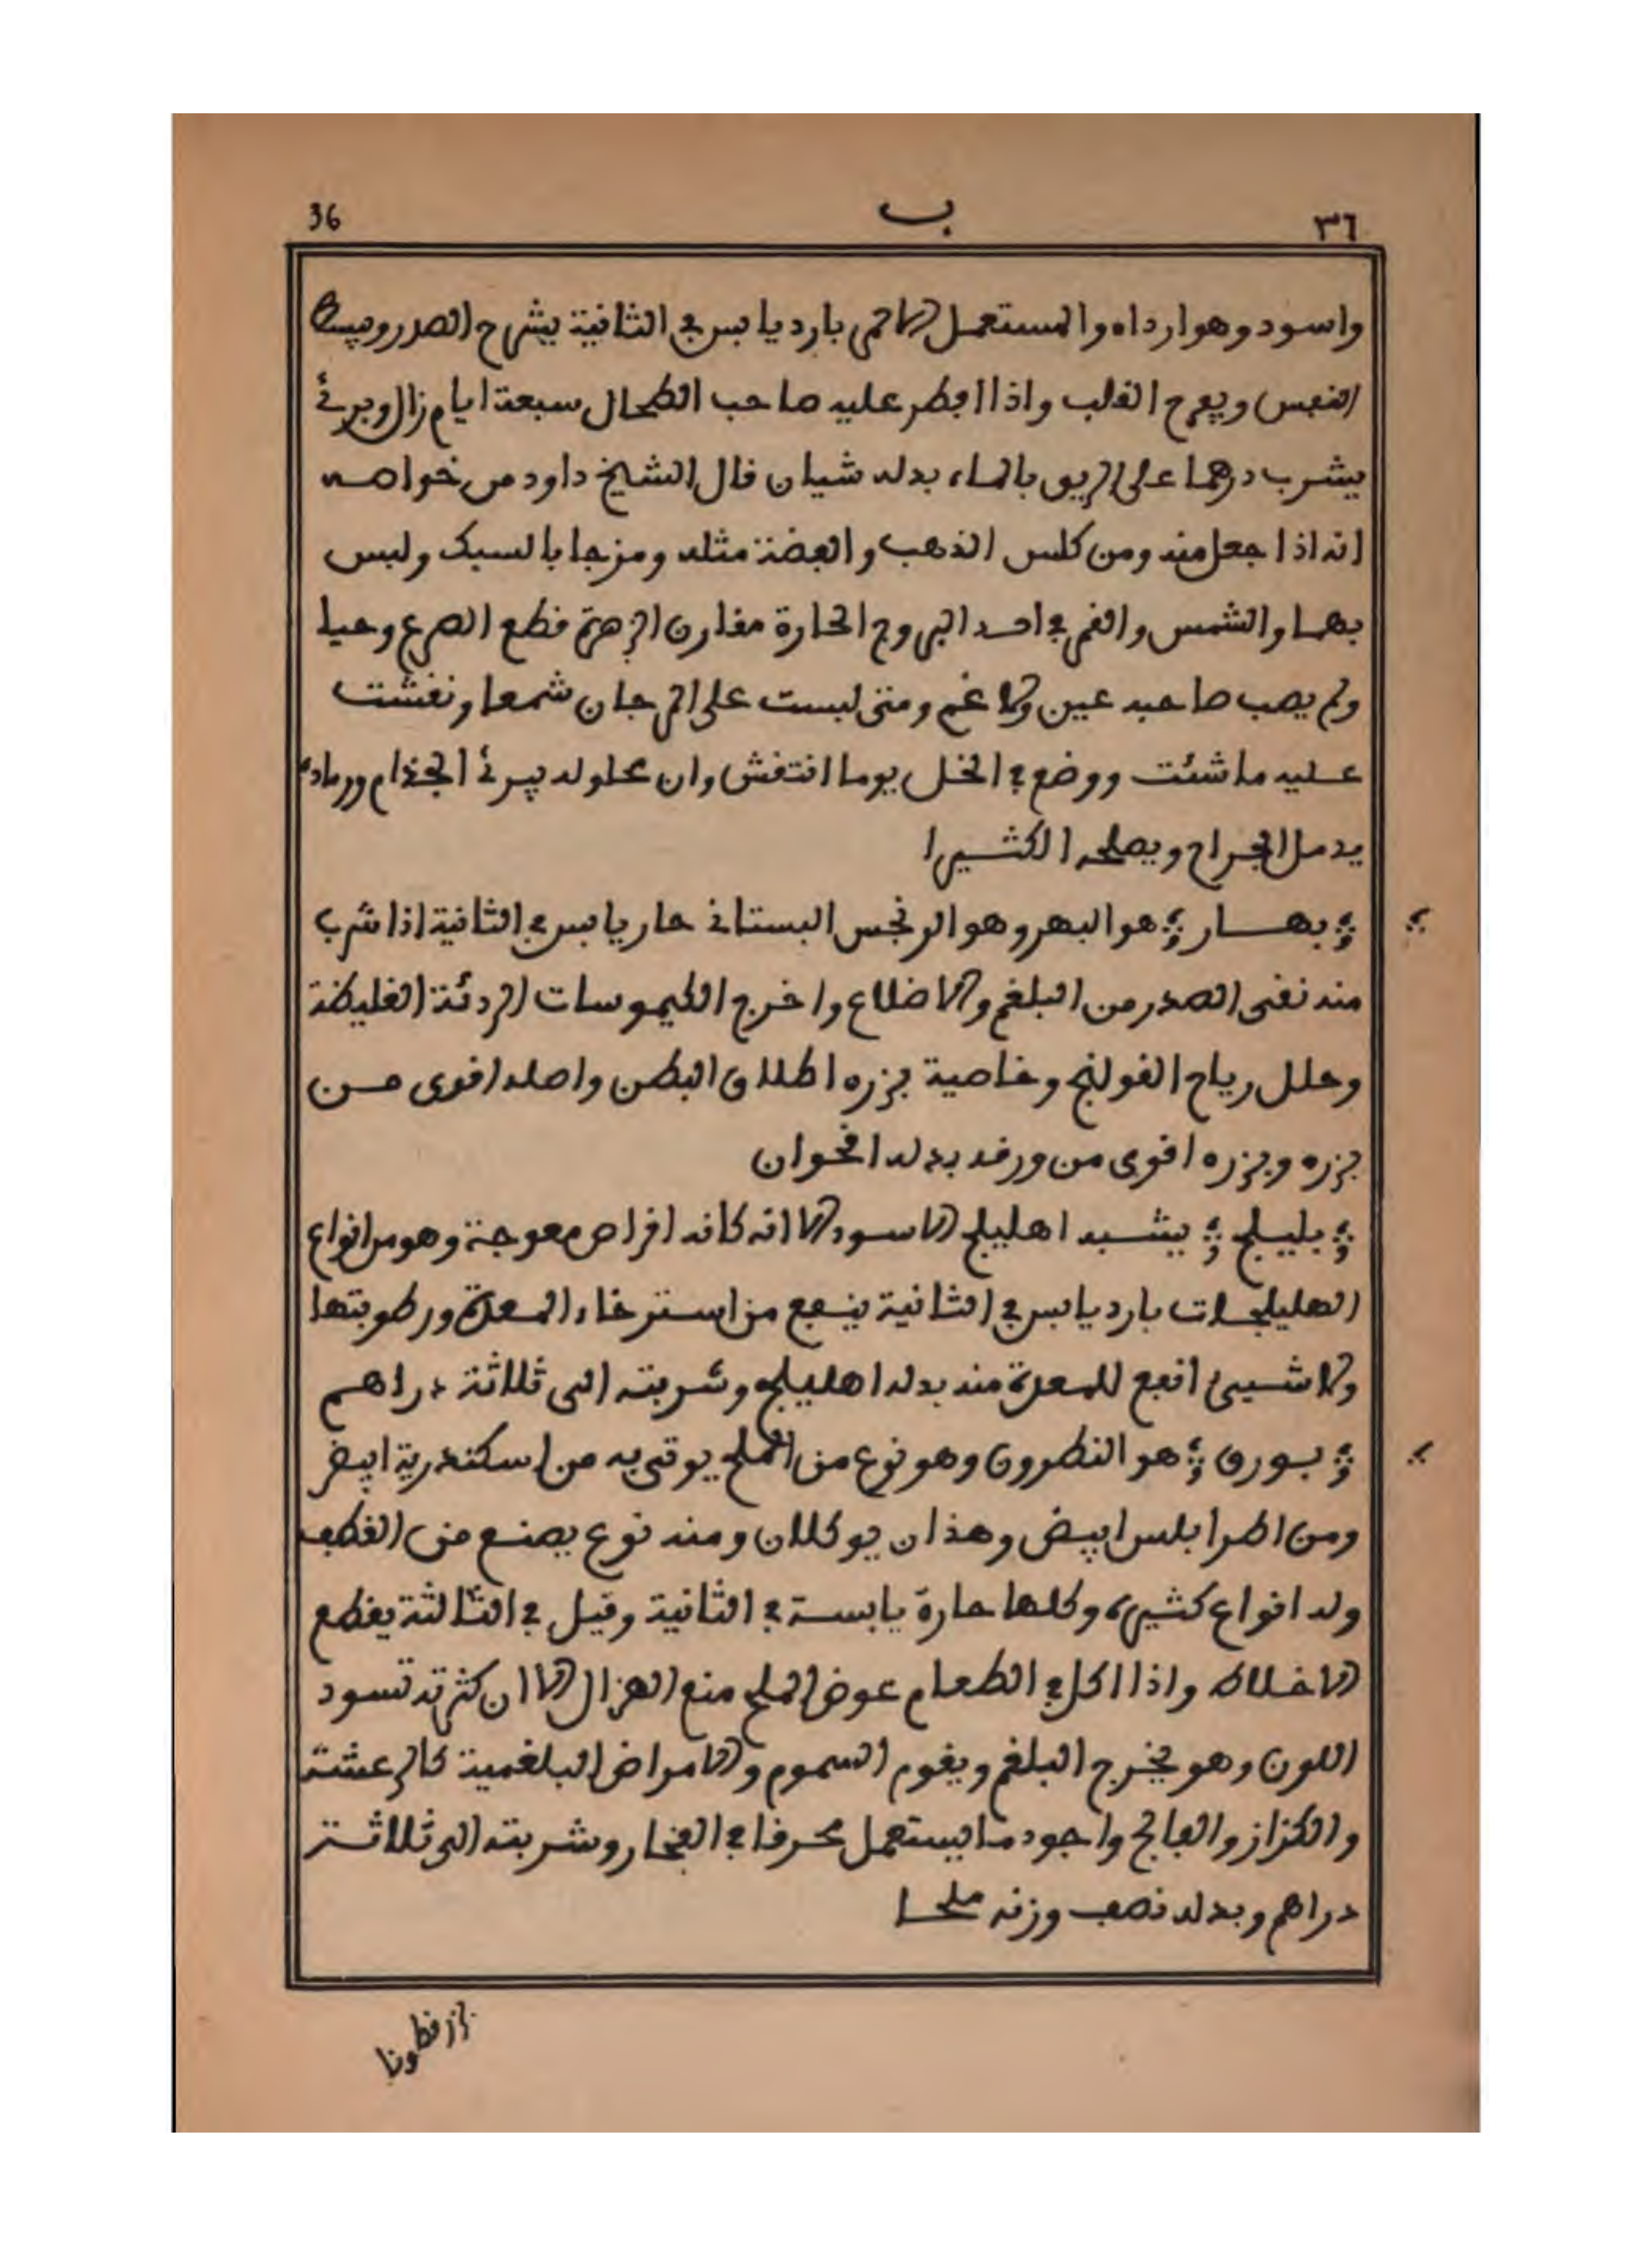 36 ب ٣٦
واسود وهو ارداه والمستعمل الاحمر بارد يابس في الثانية يشرح الصدر ويبسط
النفس ويفرح القلب واذا افطر عليه صاحب الطحال سبعة ايام زال وبرئ
يشرب درهما على الريق بالماء بدله شيان قال الشيخ داود من خواصه
انه اذا جعل منه ومن كلس الذهب والفضة مثله ومزجا بالسبك ولبس
بهما والشمس والقمر في احد البروج الحارة مقارن الزهرة قطع الصرع وحيا
ولم يصب صاحبه عين ولا غم ومتى لبست على المرجان شمعا ونقشت
عليه ما شئت ووضع في الخل يوما انتقش وان محلوله يبرئ الجذام ورماده
يدمل الجراح ويصلحه الكثيرا
بهار هو البهر وهو النرجس البستاني حار يابس في الثانية اذا شرب
منه نقى الصدر من البلغم والاضلاع واخرج الكيموسات الردئة الغليظة
وحلل رياح القولنج وخاصية بزره اطلاق البطن واصله اقوى من
بزره وبزره اقوى من ورقه بدله اقحوان
بليلج يشبه اهليلج الاسود الا انه كانه اقراص معوجة وهو من انواع
الهليلجات بارد يابس في الثانية ينفع من استرخاء المعدة ورطوبتها
ولا شيئ انفع للمعدة منه بدله اهليلج وشربته الى ثلاثة دراهم
بورق هو النطرون وهو نوع من الملح يوتى به من اسكندرية ابيض
ومن اطرابلس ابيض وهذان يوكلان ومنه نوع يصنع من القطف
وله انواع كثيرة وكلها حارة يابسة في الثانية وقيل في الثالثة يقطع
الاخلاط واذا اكل في الطعام عوض الملح منع الهزال الا ان كثرته تسود
اللون وهو يخرج البلغم ويقوم السموم والامراض البلغمية كالرعشة
والكزاز والفالج واجود ما يستعمل محرقا في الفخار وشربته الى ثلاثة
دراهم وبدله نصف وزنه ملحا
بزر قطونا